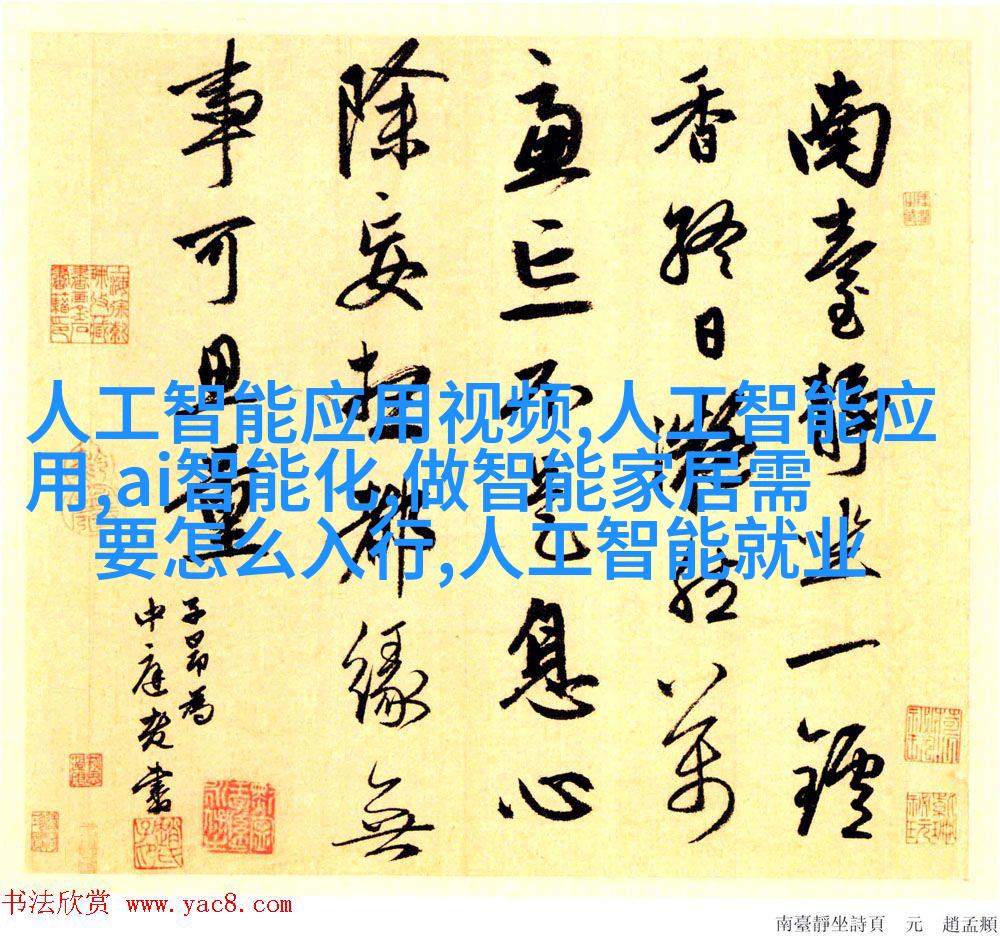 南臺靜坐一鑪
香終日凝然萬
慮亡不是息心
除妄想都緣無
事可思量
子昂為
中庭老書
人工智能应用视频,人工智能应
用,ai智能化,做智能家居需
要怎么入行,人工智能就业
书法欣赏 www.yac8.com
南臺靜坐詩頁 元 趙孟頫